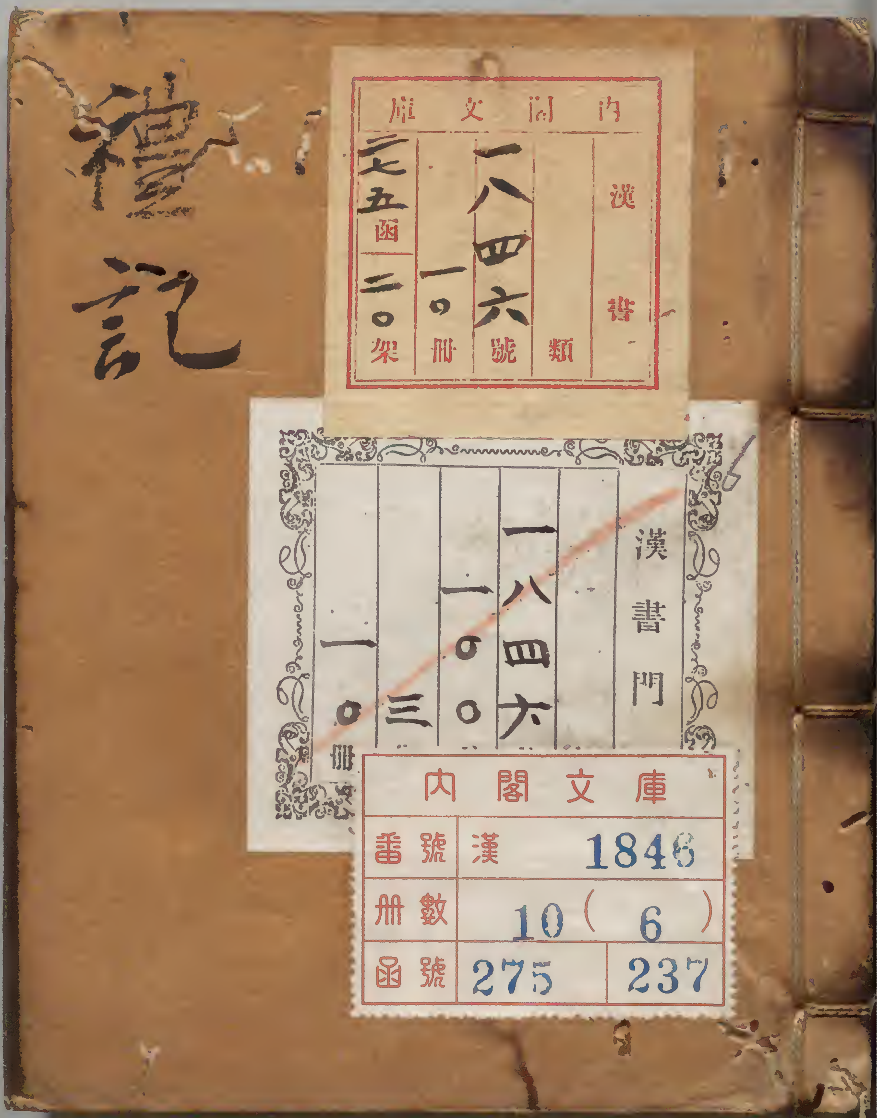 禮記
内閣文庫
漢書
類
一八四六號
一〇冊
二七五函
二〇架
漢書門
一八四六
一〇〇
三
一〇冊
内閣文庫
番號 漢 1846
冊數 10 ( 6 )
函號 275 237